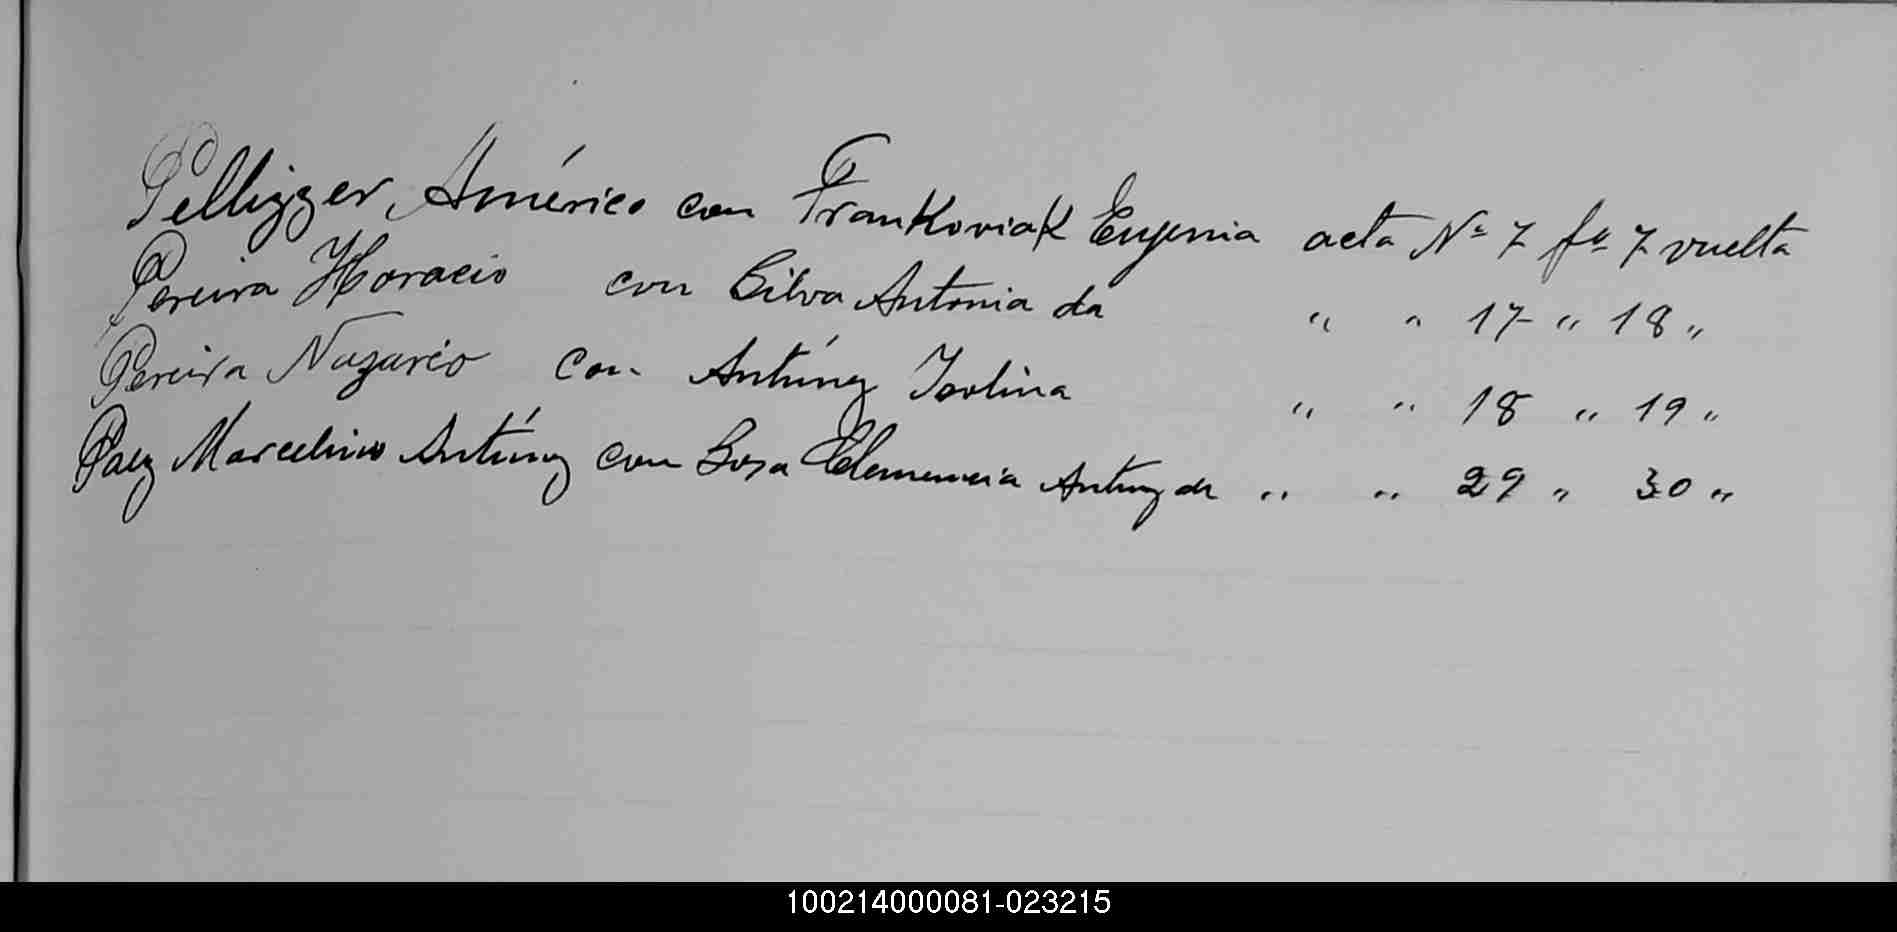 Pellizzer, Américo con Frankoviak Eugenia acta Nº 7 fº 7 vuelta
Pereira Horacio con Silva Antonia da " " 17 " 18 "
Pereira Nazario con Antúnez Isolina " " 18 " 19 "
Paez Marcelino Antúnez con Sosa Clemencia Antunez de " " 29 " 30 "
100214000081-023215